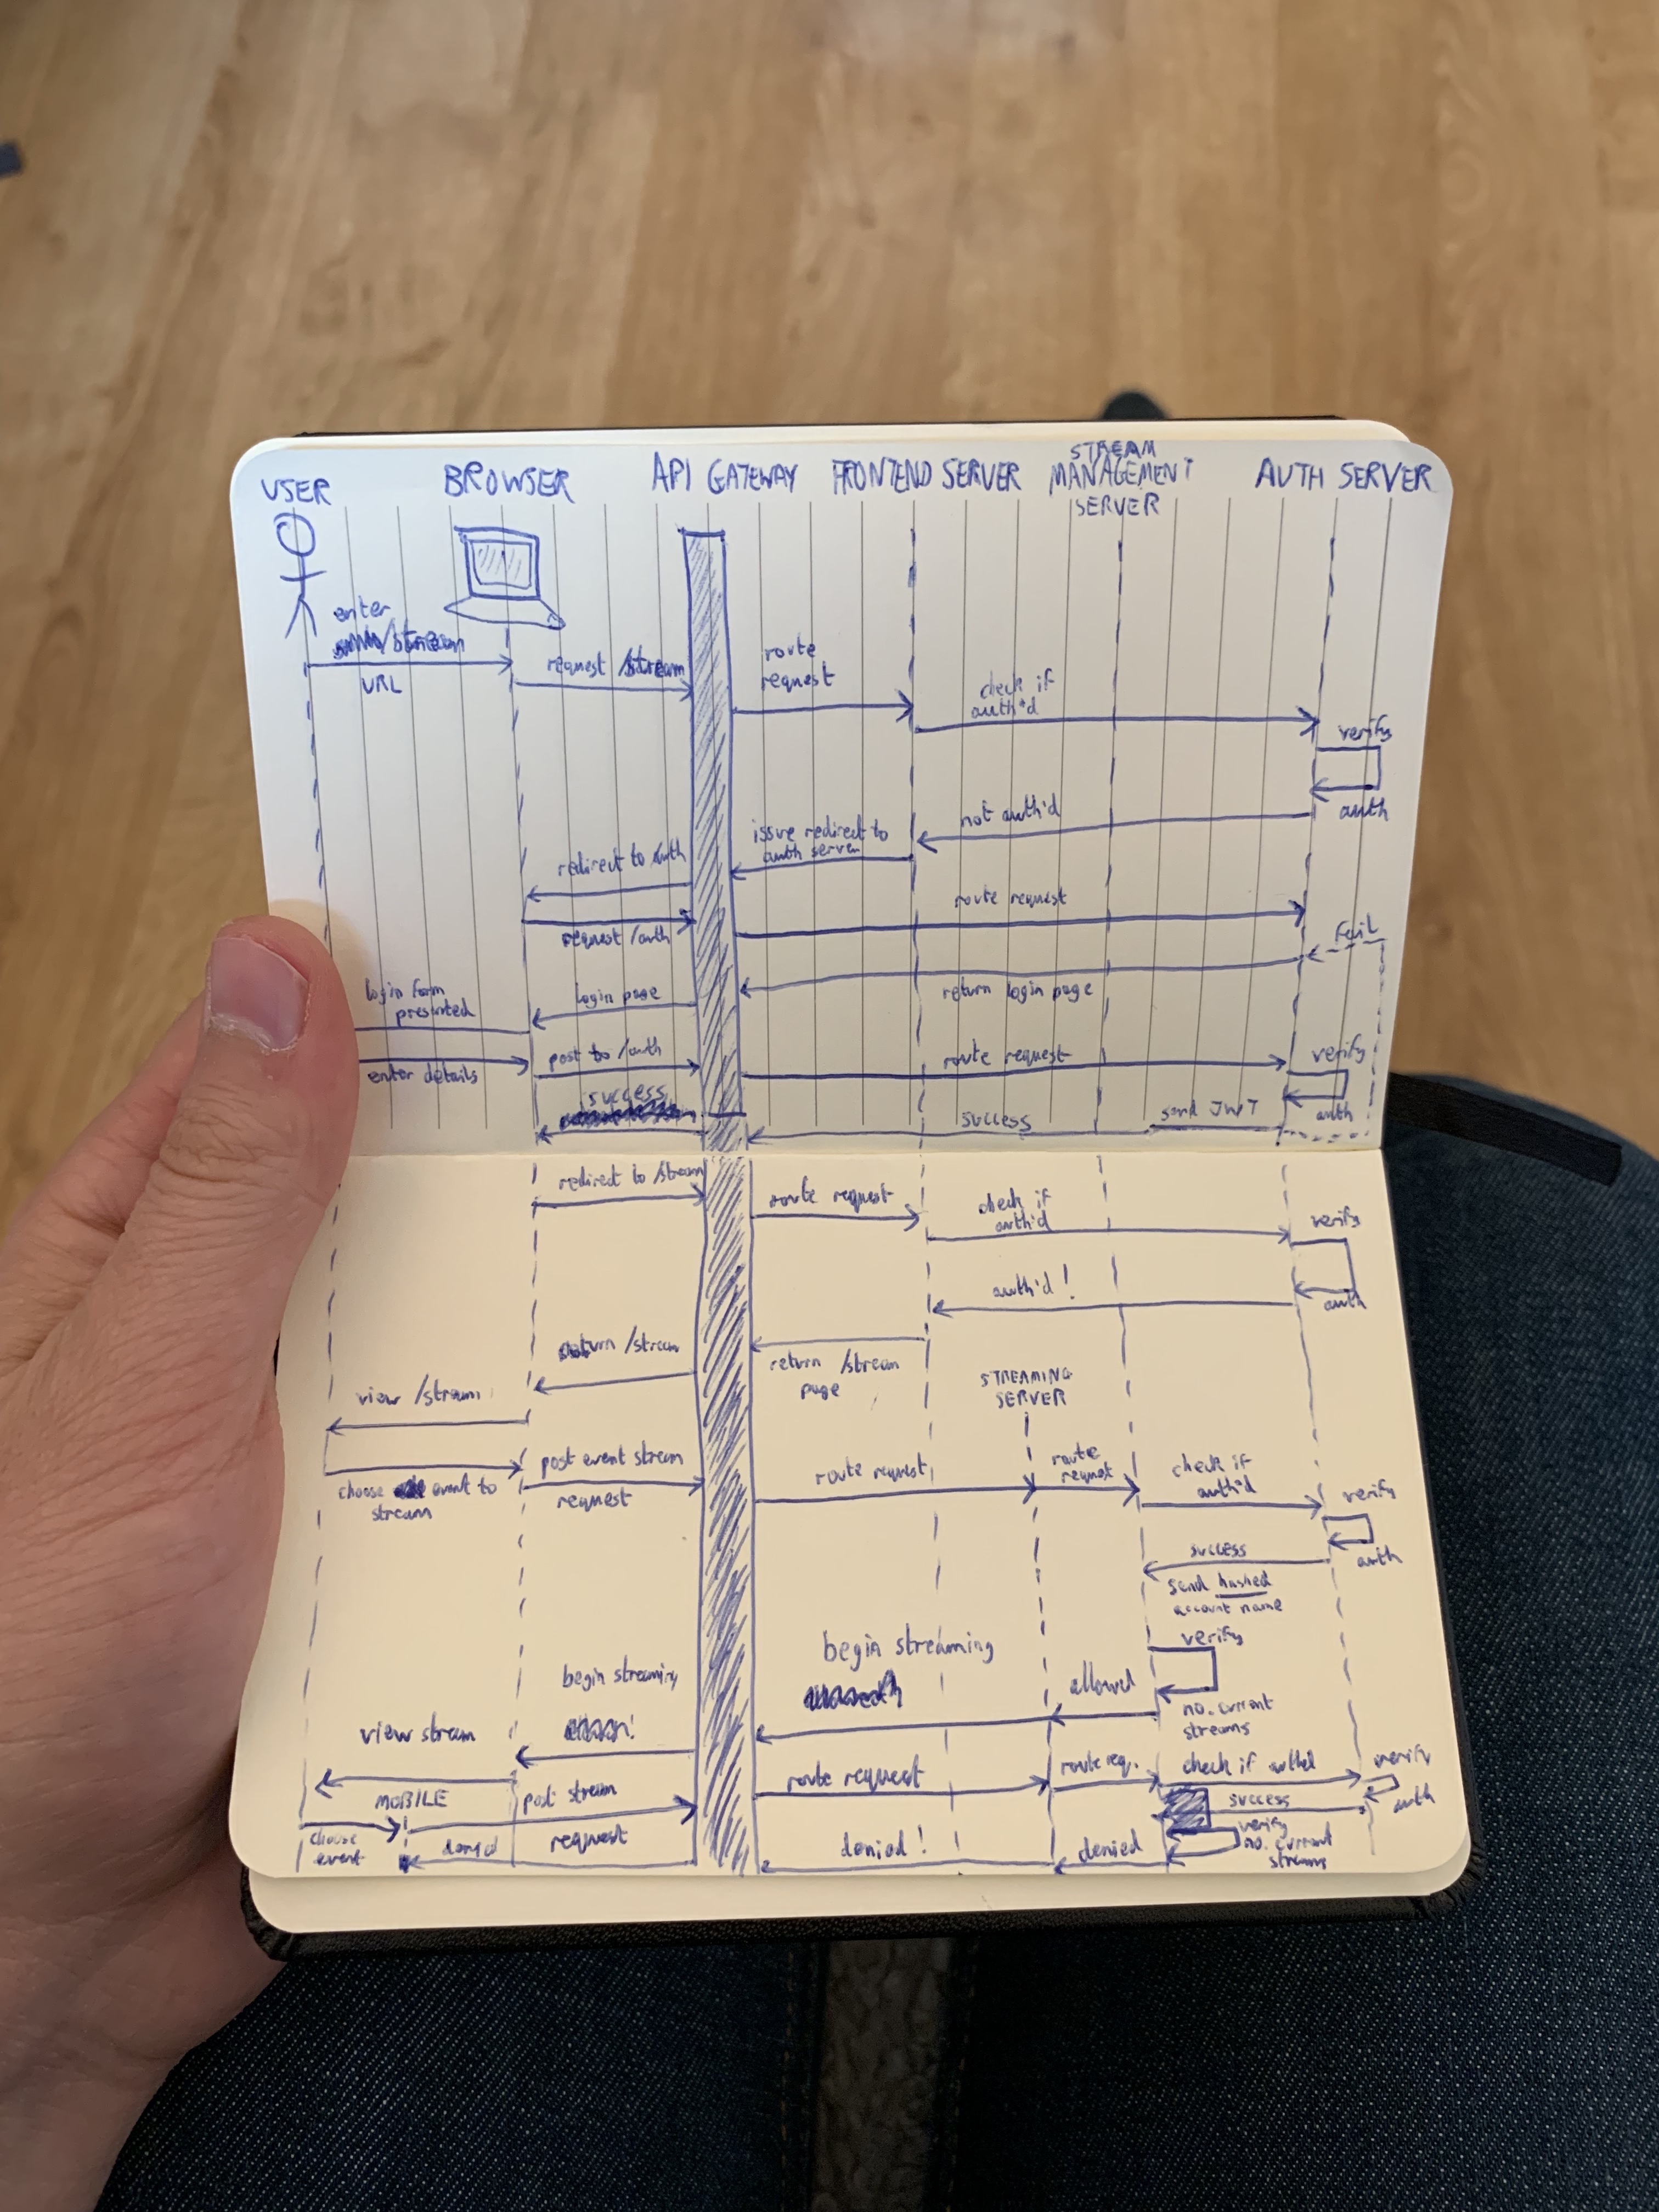 USER
BROWSER
API GATEWAY
FRONTEND SERVER
STREAM
MANAGEMENT
SERVER
AUTH SERVER
enter
/stream
URL
request /stream
route
request
check if
auth'd
verify
auth
not auth'd
issue redirect to
auth server
redirect to auth
request /auth
route request
fail
return login page
login page
login form
presented
enter details
post to /auth
route request
verify
auth
send JWT
success
success
redirect to /stream
route request
check if
auth'd
verify
auth
auth'd !
return /stream
page
return /stream
view /stream
STREAMING
SERVER
choose event to
stream
post event stream
request
route request
route
request
check if
auth'd
verify
auth
success
send hashed
account name
verify
no. current
streams
allowed
begin streaming
begin streaming
view stream
MOBILE
choose
event
post stream
request
route request
route req.
check if auth'd
verify
auth
success
verify
no. current
streams
denied
denied !
denied